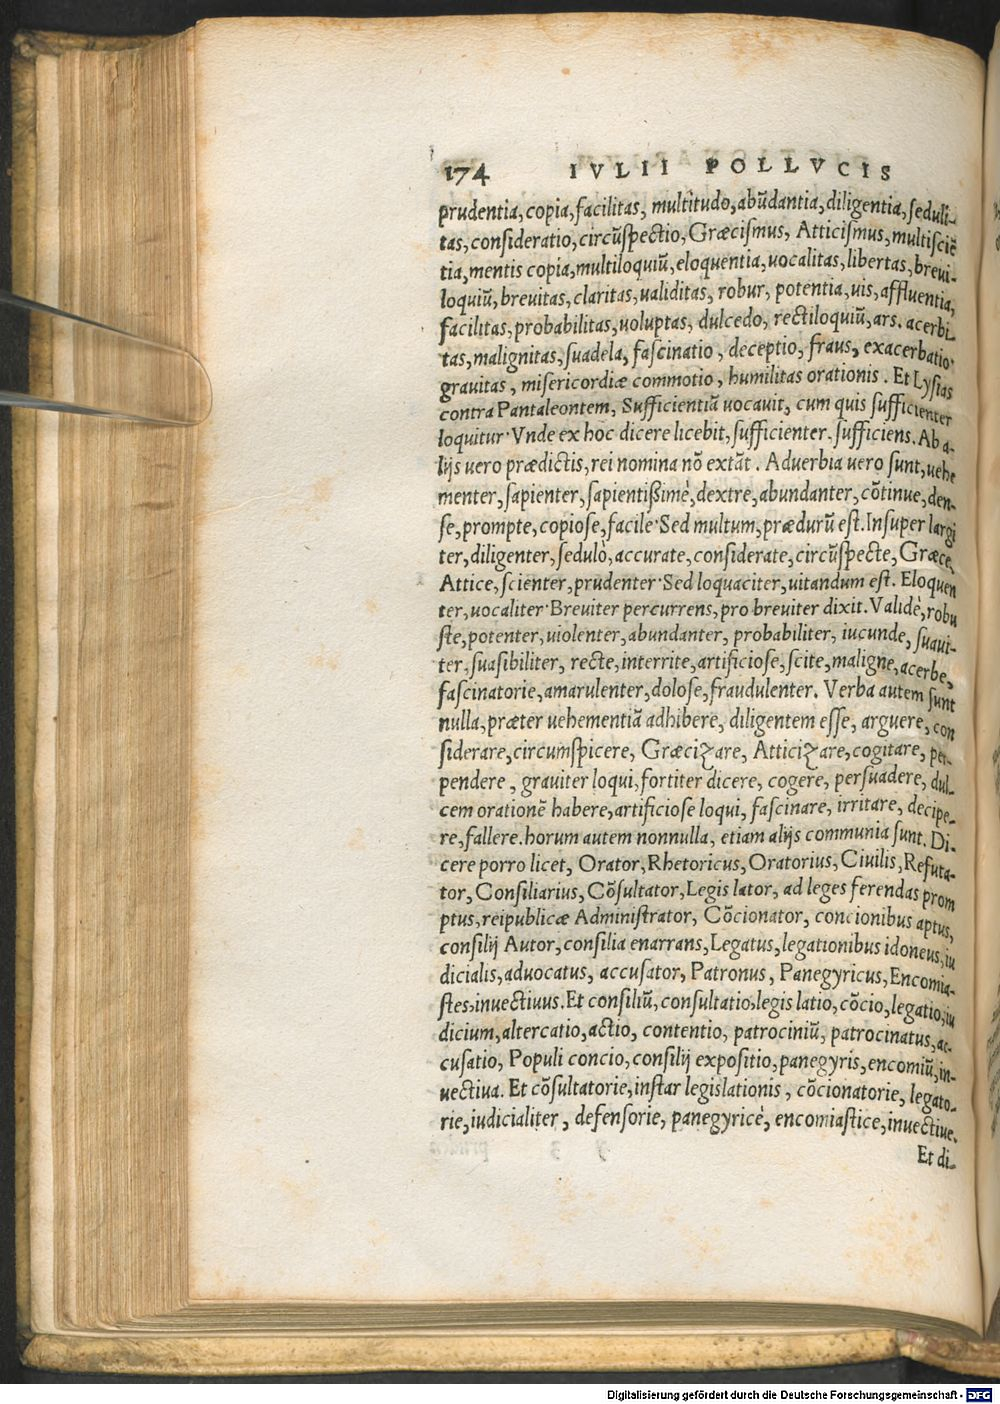 174 IVLII POLLVCIS
prudentia, copia, facilitas, multitudo, abũdantia, diligentia, ſeduli-
tas, conſideratio, circũſpectio, Græciſmus, Atticiſmus, multiſciẽ
tia, mentis copia, multiloquiũ, eloquentia, uocalitas, libertas, breui-
loquiũ, breuitas, claritas, ualiditas, robur, potentia, uis, affluentia,
facilitas, probabilitas, uoluptas, dulcedo, rectiloquiũ, ars. acerbi-
tas, malignitas, ſuadela, faſcinatio, deceptio, fraus, exacerbatio·
grauitas, miſericordiæ commotio, humilitas orationis. Et Lyſias
contra Pantaleontem, Sufficientiã uocauit, cum quis ſufficienter
loquitur· Vnde ex hoc dicere licebit, ſufficienter. ſufficiens. Ab a-
lijs uero prædictis, rei nomina nõ extãt. Aduerbia uero ſunt, uehe
menter, ſapienter, ſapientißimè, dextre, abundanter, cõtinue, den-
ſe, prompte, copioſe, facile· Sed multum, prædurũ eſt. Inſuper largi
ter, diligenter, ſedulò, accurate, conſiderate, circũſpecte, Græce,
Attice, ſcienter, prudenter· Sed loquaciter, uitandum eſt. Eloquen
ter, uocaliter· Breuiter percurrens, pro breuiter dixit. Validè, robu
ſte, potenter, uiolenter, abundanter, probabiliter, iucunde, ſuaui-
ter, ſuaſibiliter, recte, interrite, artificioſe, ſcite, maligne, acerbe,
faſcinatorie, amarulenter, doloſe, fraudulenter. Verba autem ſunt
nulla, præter uehementiã adhibere, diligentem eſſe, arguere, con
ſiderare, circumſpicere, Græcizare, Atticizare, cogitare, per-
pendere, grauiter loqui, fortiter dicere, cogere, perſuadere, dul-
cem orationẽ habere, artificioſe loqui, faſcinare, irritare, decipe-
re, fallere. horum autem nonnulla, etiam alijs communia ſunt. Di-
cere porro licet, Orator, Rhetoricus, Oratorius, Ciuilis, Refuta-
tor, Conſiliarius, Cõſultator, Legis lator, ad leges ferendas prom
ptus, reipublicæ Adminiſtrator, Cõcionator, concionibus aptus,
conſilij Autor, conſilia enarrans, Legatus, legationibus idoneus, iu
dicialis, aduocatus, accuſator, Patronus, Panegyricus, Encomia-
ſtes, inuectiuus. Et conſiliũ, conſultatio, legis latio, cõcio, legatio, iu
dicium, altercatio, actio, contentio, patrociniũ, patrocinatus, ac-
cuſatio, Populi concio, conſilij expoſitio, panegyris, encomiũ, in-
uectiua. Et cõſultatorie, inſtar legislationis, cõcionatorie, legato-
rie, iudicialiter, defenſorie, panegyricè, encomiaſtice, inuectiue.
Et di-
Digitalisierung gefördert durch die Deutsche Forschungsgemeinschaft - DFG